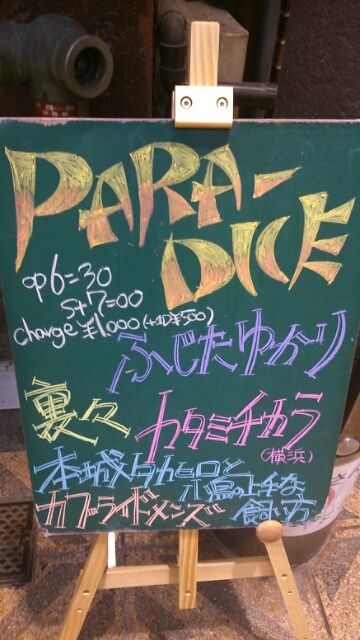 PARA-
DICE
OP6=30
St7=00
charge ¥1000(+1D¥500)
ふじたゆかり
裏々
カタミチカラ
(横浜)
本城タカヒロと
小鳥の上手な
飼い方
カブライドメンズ